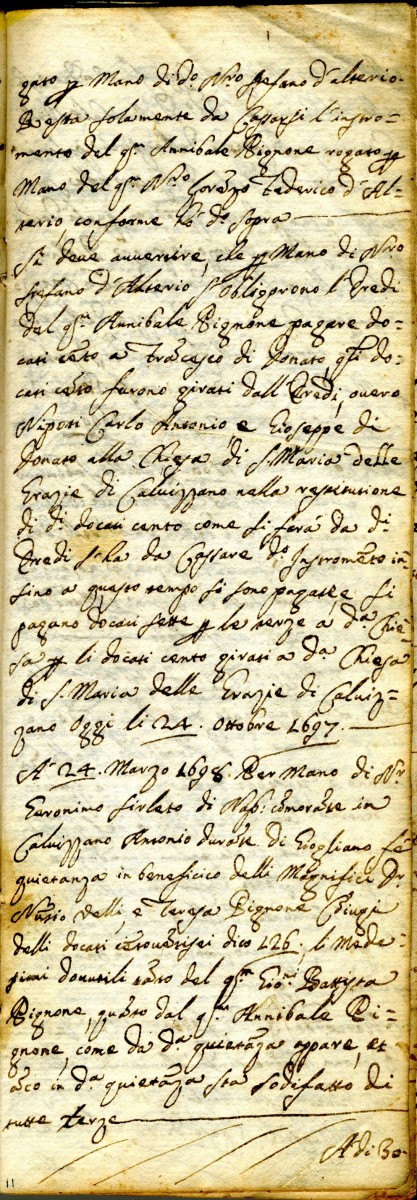 gato p Mano di d.º N.ro Stefano d'Alterio.
Resta solamente da Cassarsi l'instro=
mento del q.m Annibale Pignone rogato p
Mano del q.m N.ro Lorenzo Federico d'Al=
terio, conforme hò d.º Sopra
Si deve avvertire, che p Mano di N.ro
Stefano d'Alterio s'obligorono l'Eredi
del q.m Annibale Pignone pagare do=
cati cento a Francesco di Donato q.li do=
cati cento furono girati dall'Eredi, overo
Nipoti Carlo Antonio, e Gioseppe di
Donato alla Chiesa di S. Maria delle
Grazie di Calvizzano nella restitutione
di d.i docati cento come si farà da d.i
Eredi s'hà da Cassare d.º Instromento in=
sino a questo tempo si sono pagati, e si
pagano docati sette p le terze a d.a Chie=
sa p li docati cento girati a d.a Chiesa
di S. Maria delle Grazie di Calviz=
zano Oggi li 24. Ottobre 1697.
A' 24. Marzo 1698. Per Mano di N.r
Geronimo Sirleto di Nap: comorante in
Calvizzano Antonio durante di Giogliano fè
quietanza in beneficico delli Magnifici D.r
Nutio Velli, e Teresa Pignone Coiugi
delli docati centoventisei dico 126. li Mede=
simi dovutili tanto del q.m Gio: Battista
Pignone, quanto dal q.m Annibale Pi=
gnone, come da d.a quietanza appare, et
anco in d.a quietanza sta sodisfatto di
tutte terze
A' di 30.
11